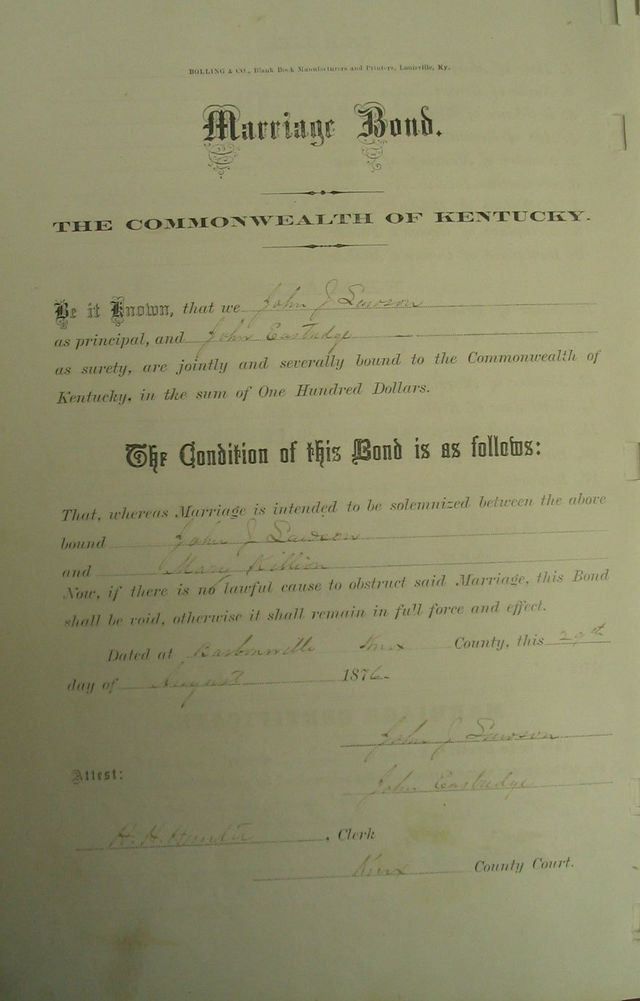 BOLLING & CO., Blank Book Manufacturers and Printers, Louisville, Ky.
Marriage Bond.
THE COMMONWEALTH OF KENTUCKY.
Be it Known, that we John J Lawson
as principal, and John Eastridge
as surety, are jointly and severally bound to the Commonwealth of
Kentucky, in the sum of One Hundred Dollars.
The Condition of this Bond is as follows:
That, whereas Marriage is intended to be solemnized between the above
bound John J Lawson
and Mary Killion
Now, if there is no lawful cause to obstruct said Marriage, this Bond
shall be void, otherwise it shall remain in full force and effect.
Dated at Barbourville Knox County, this 29th
day of August 1876.
John J Lawson
Attest:
John Eastridge
H. H. , Clerk
Knox County Court.